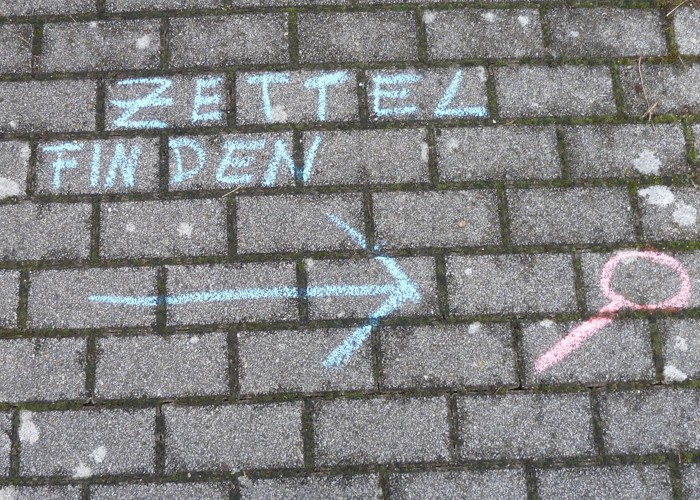 ZETTEL
FINDEN